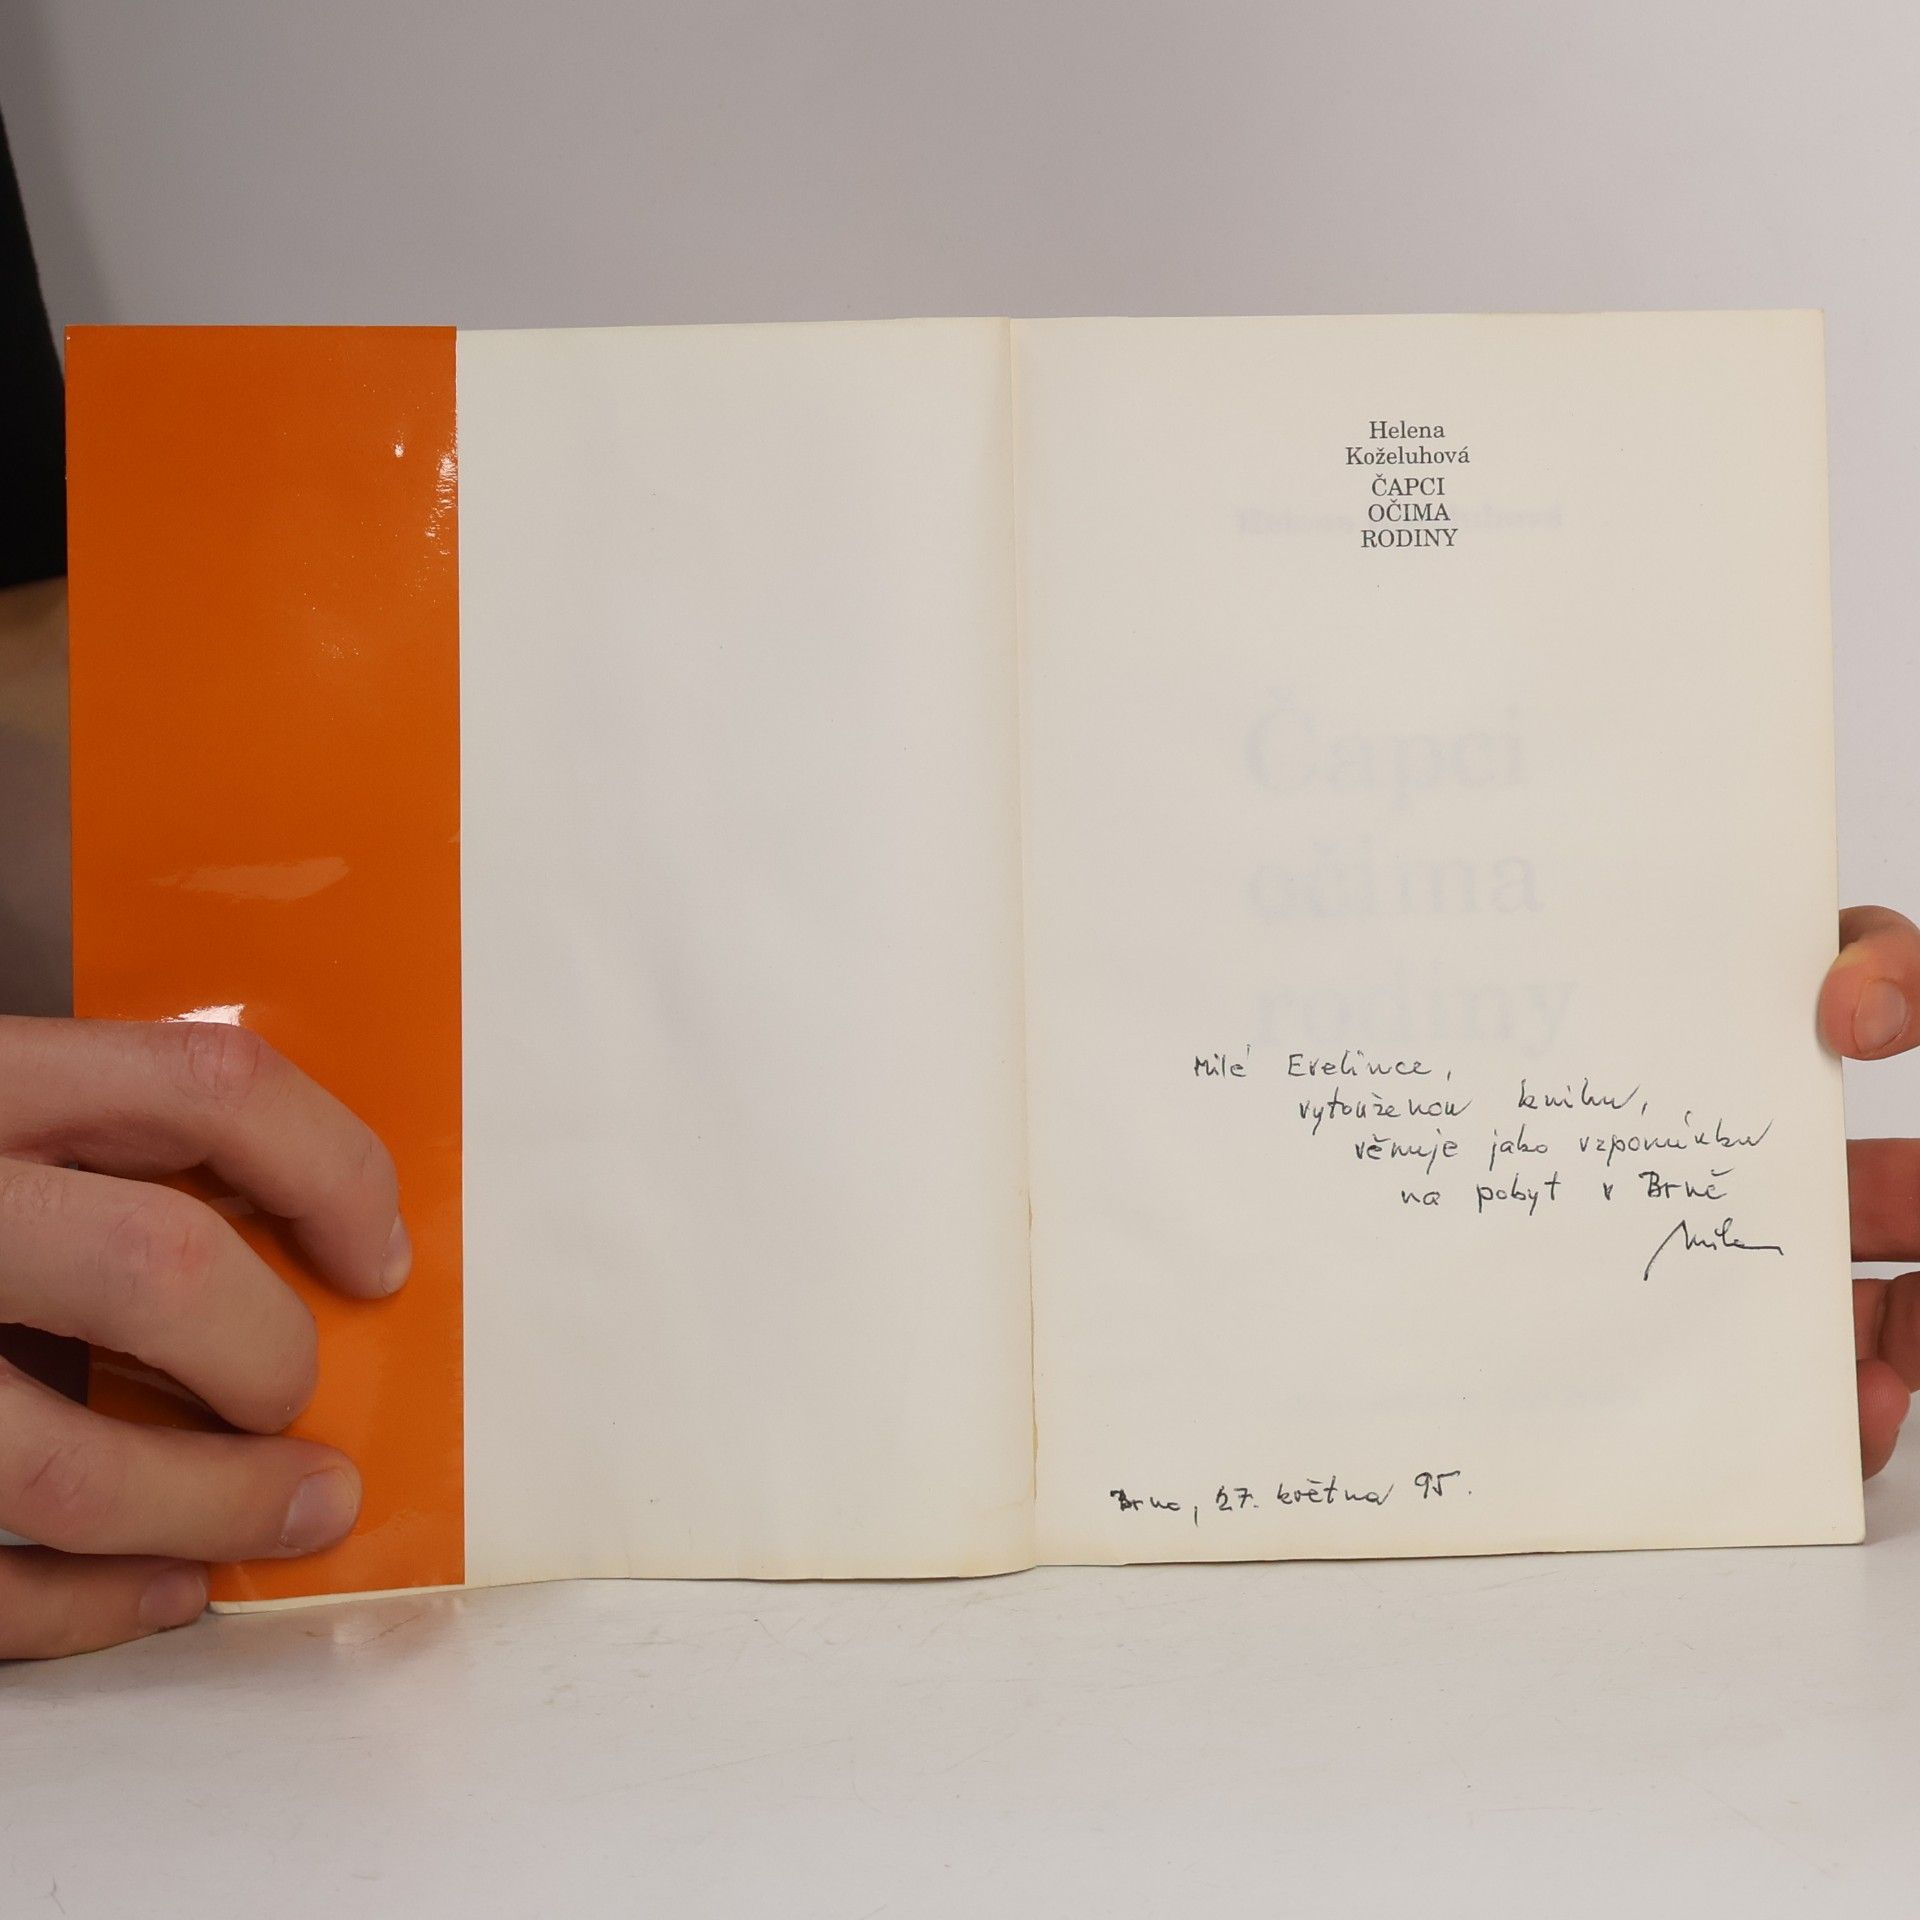 Helena
Koželuhová
ČAPCI
OČIMA
RODINY
Čapci
očima
rodiny
Milé Evelince,
vytouženou knihu,
věnuje jako vzpomínku
na pobyt v Brně
Milan
Brno, 27. května 95.